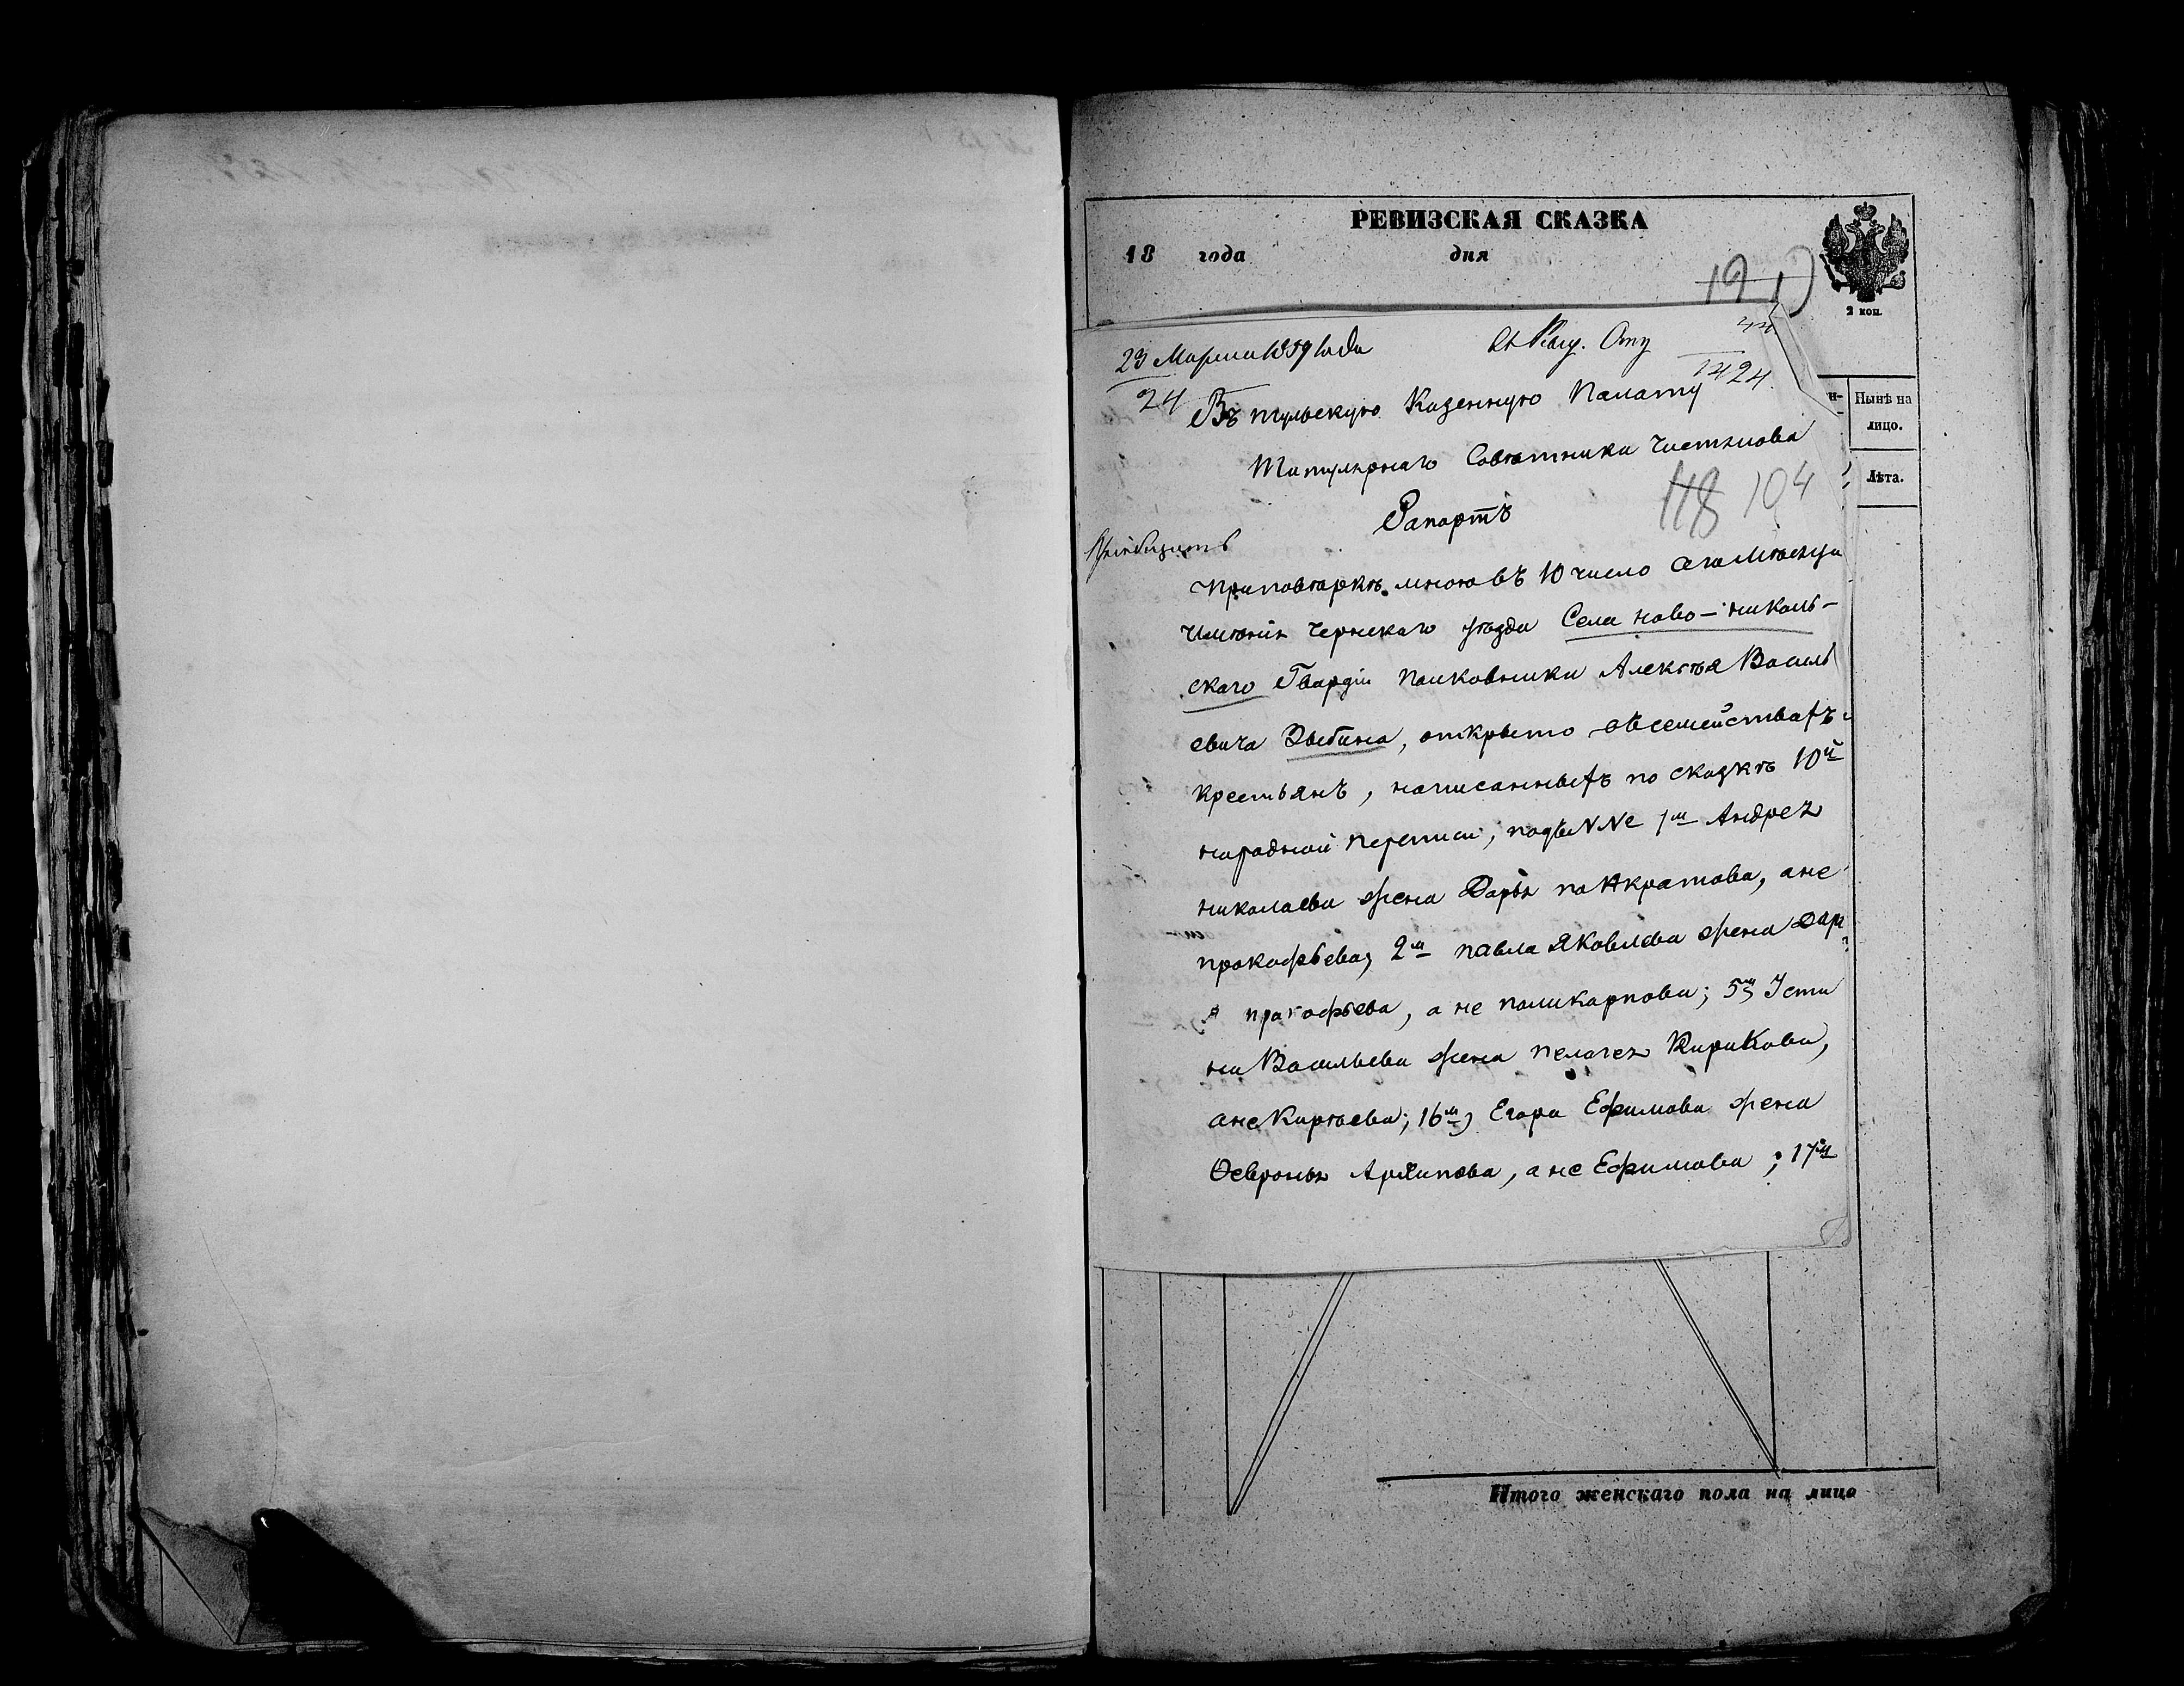 РЕВИЗСКАЯ СКАЗКА
18 года дня
19
2 коп.
23 Марта 1859 года
24
1424
Въ тульскую Казенную Палату
Титулярнаго Советника Чистякова
118 104
Рапортъ
При поверке мною въ 10 число сего Месяца
Имения Чернскаго уезда Села ново-николь-
скаго Гвардіи полковника Алексея Василь
евича Зыбина, открыто въ семействахъ
крестьянъ, написанныхъ по сказке 10й
народной переписи, подъ NNе 1м Андрея
николаева жена Дарья панкратова, а не
прокофьева, 2м павла Яковлева жена Дарь
я прокофьева, а не поликарпова; 5м, Усти
на Васильева жена пелагея Кирикова,
а не Киреева; 16м, Егора Ефимова жена
Ѳевронья Архипова, а не Ефимова; 17м
Нынѣ на
лицо.
Лѣта.
Итого женскаго пола на лицо